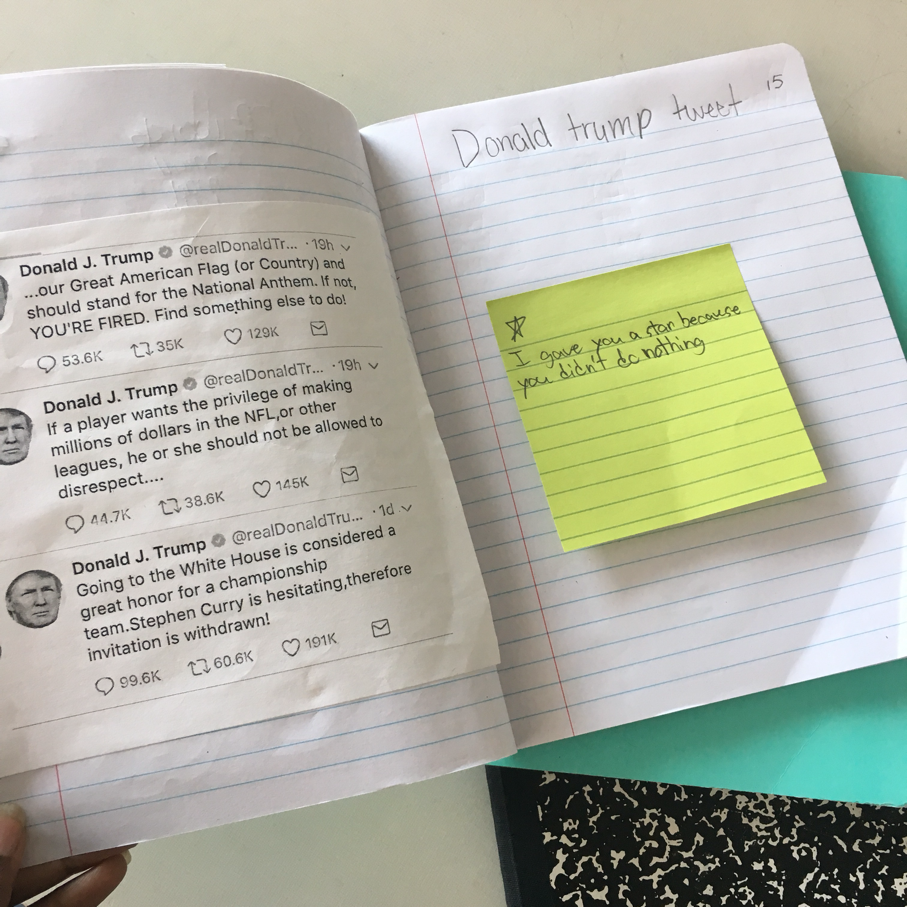 Donald J. Trump @realDonaldTr... · 19h
...our Great American Flag (or Country) and
should stand for the National Anthem. If not,
YOU'RE FIRED. Find something else to do!
53.6K 35K 129K
Donald J. Trump @realDonaldTr... · 19h
If a player wants the privilege of making
millions of dollars in the NFL,or other
leagues, he or she should not be allowed to
disrespect....
44.7K 38.6K 145K
Donald J. Trump @realDonaldTru... · 1d
Going to the White House is considered a
great honor for a championship
team.Stephen Curry is hesitating,therefore
invitation is withdrawn!
99.6K 60.6K 191K
15
Donald trump tweet
I gave you a star because
you didn't do nothing